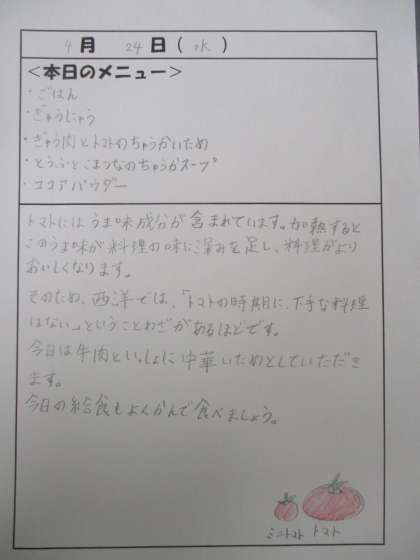 4月 24日(水)
<本日のメニュー>
・ごはん
・ぎゅうにゅう
・ぎゅう肉とトマトのちゅうかいため
・とうふとこまつなのちゅうかスープ
・ココアパウダー
トマトにはうま味成分が含まれています。加熱すると
このうま味が料理の味に深みを足し、料理がより
おいしくなります。
そのため、西洋では、「トマトの時期に、下手な料理
はない。」ということわざがあるほどです。
今日は牛肉といっしょに中華いためとしていただき
ます。
今日の給食もよくかんで食べましょう。
ミニトマト トマト